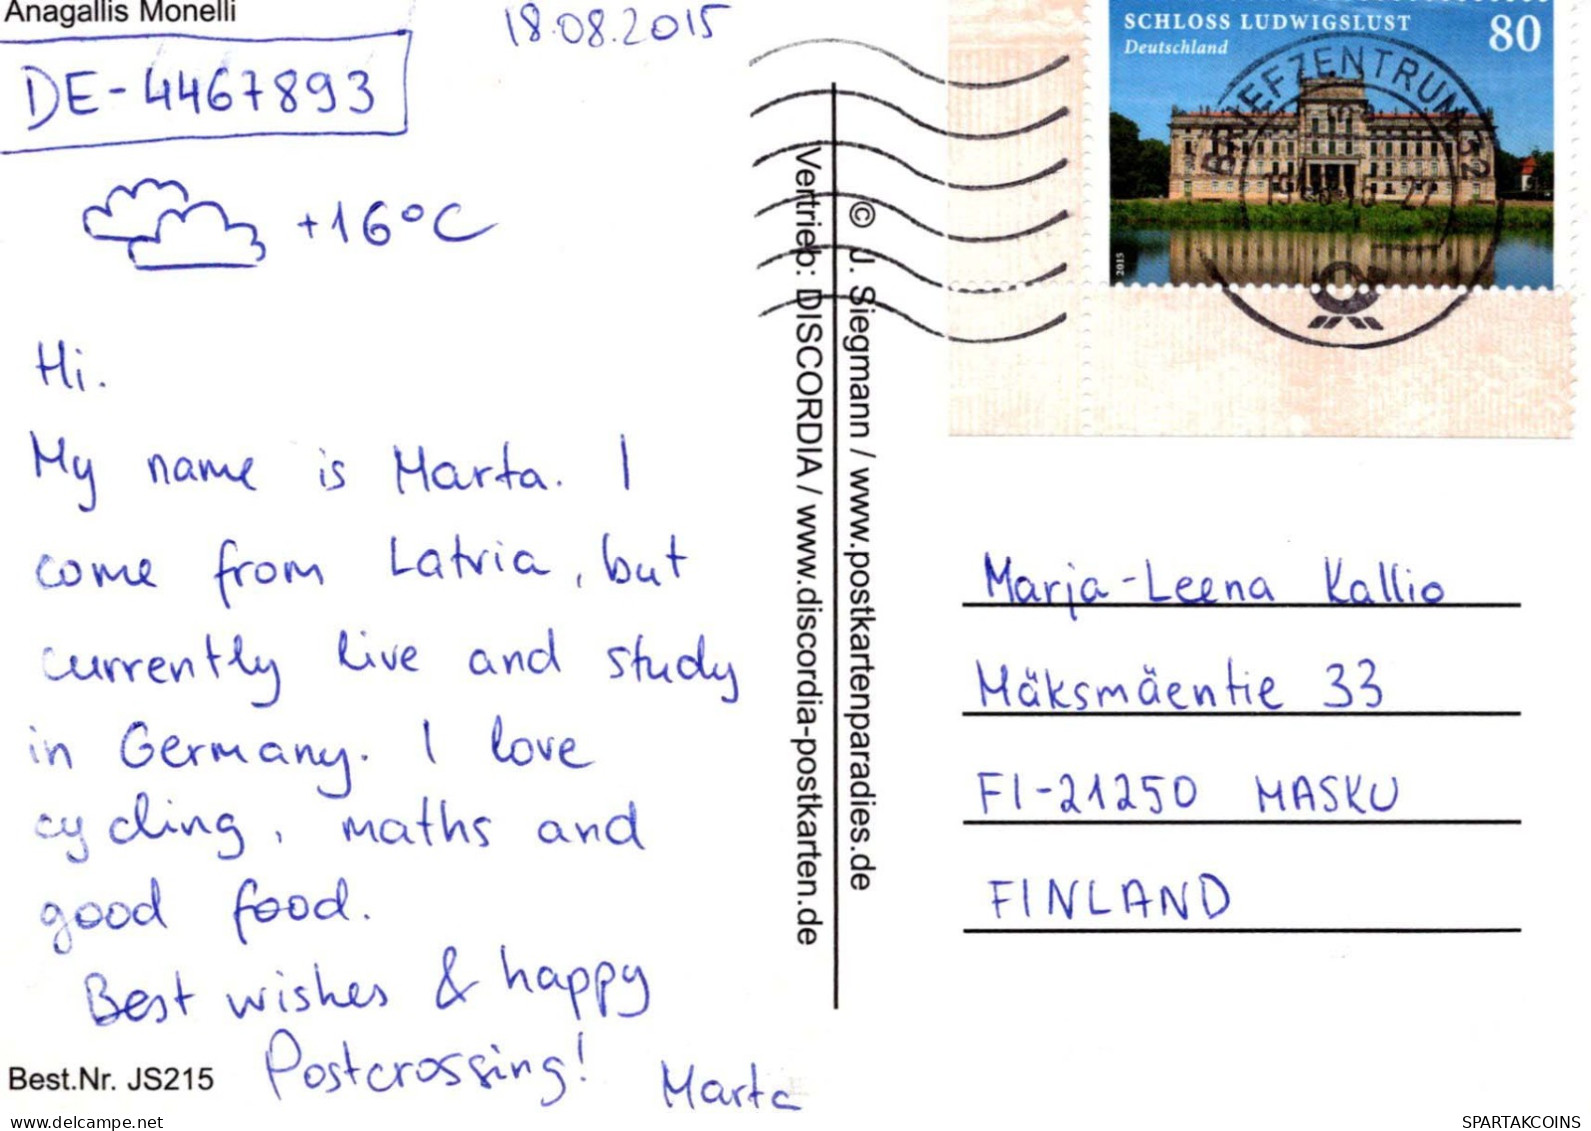 Anagallis Monelli
18.08.2015
DE-4467893
+16°C
Hi.
My name is Marta. I
come from Latvia, but
currently live and study
in Germany. I love
cycling, maths and
good food.
Best wishes & happy
Postcrossing!
Marta
Best.Nr. JS215
Vertrieb: DISCORDIA / www.discordia-postkarten.de
© J. Siegmann / www.postkartenparadies.de
SCHLOSS LUDWIGSLUST
Deutschland
80
2015
BRIEFZENTRUM 52
Marja-Leena Kallio
Mäksmäentie 33
FI-21250 MASKU
FINLAND
www.delcampe.net
SPARTAKCOINS